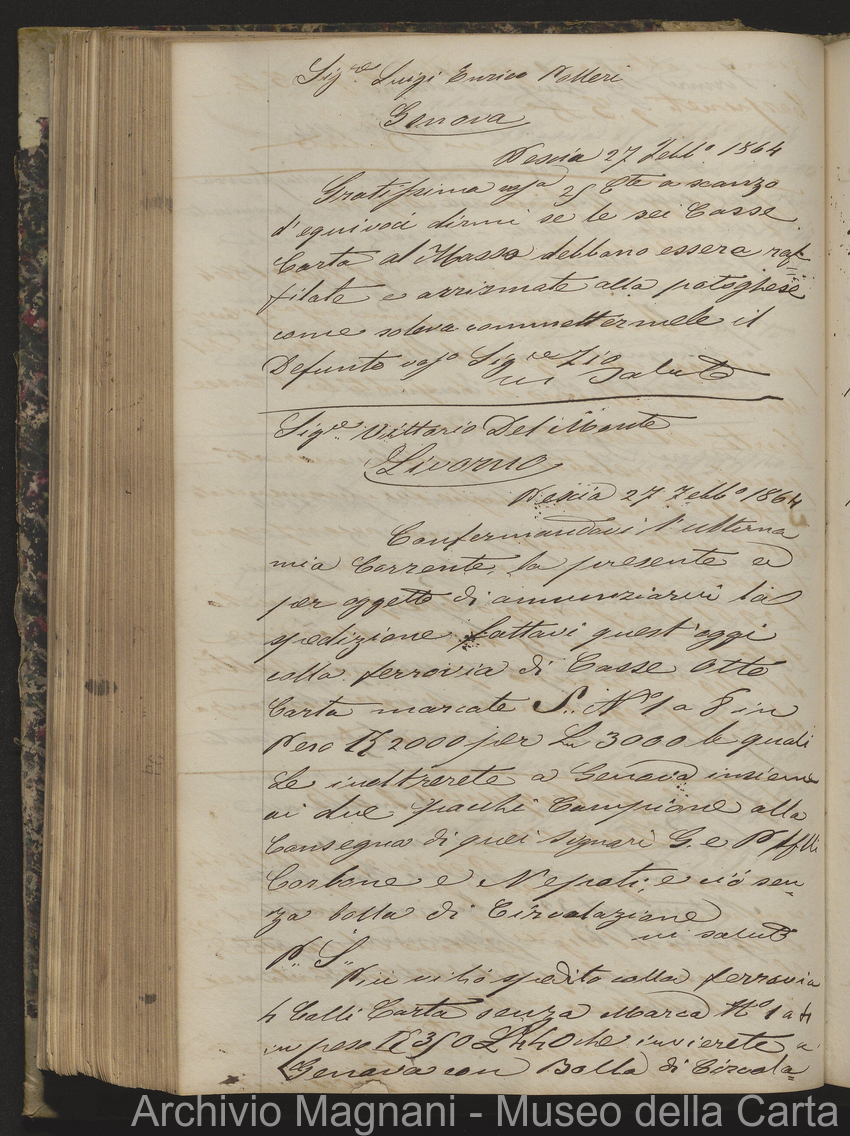 Sig.re Luigi Enrico Polleri
Genova
Pescia 27 Febb.o 1864
Gratissima vos.a 25 C.te a scanzo
d'equivoci dirmi se le sei Casse
Carta al Masso debbano essere raf=
filate e arrismate alla
come soleva commettermele il
Defunto vos.o Sig.re Zio
vi saluto
Sig.re Vittorio Del Monte
Livorno
Pescia 27 Febb.o 1864
Confermandovi l'ultima
mia Corrente, la presente è
per oggetto di annunziarvi la
spedizione fattavi quest'oggi
colla ferrovia di Casse Otto
Carta marcate S.. N.o 1 a 8 in
Peso K 2000 per L. 3000 le quali
le inoltrerete a Genova insieme
ai due pacchi Campione alla
Consegna di quei Signori G. e P. flli
Carbone e Nepoti; e ciò sen=
za bolla di Circolazione
vi saluto
P.. S..
Più vi hò spedito colla ferrovia
4 Colli Carta senza Marca N.o 1 a 4
in peso K 350 L. 440 che invierete a
Genova con Bolla di Circola=
Archivio Magnani - Museo della Carta